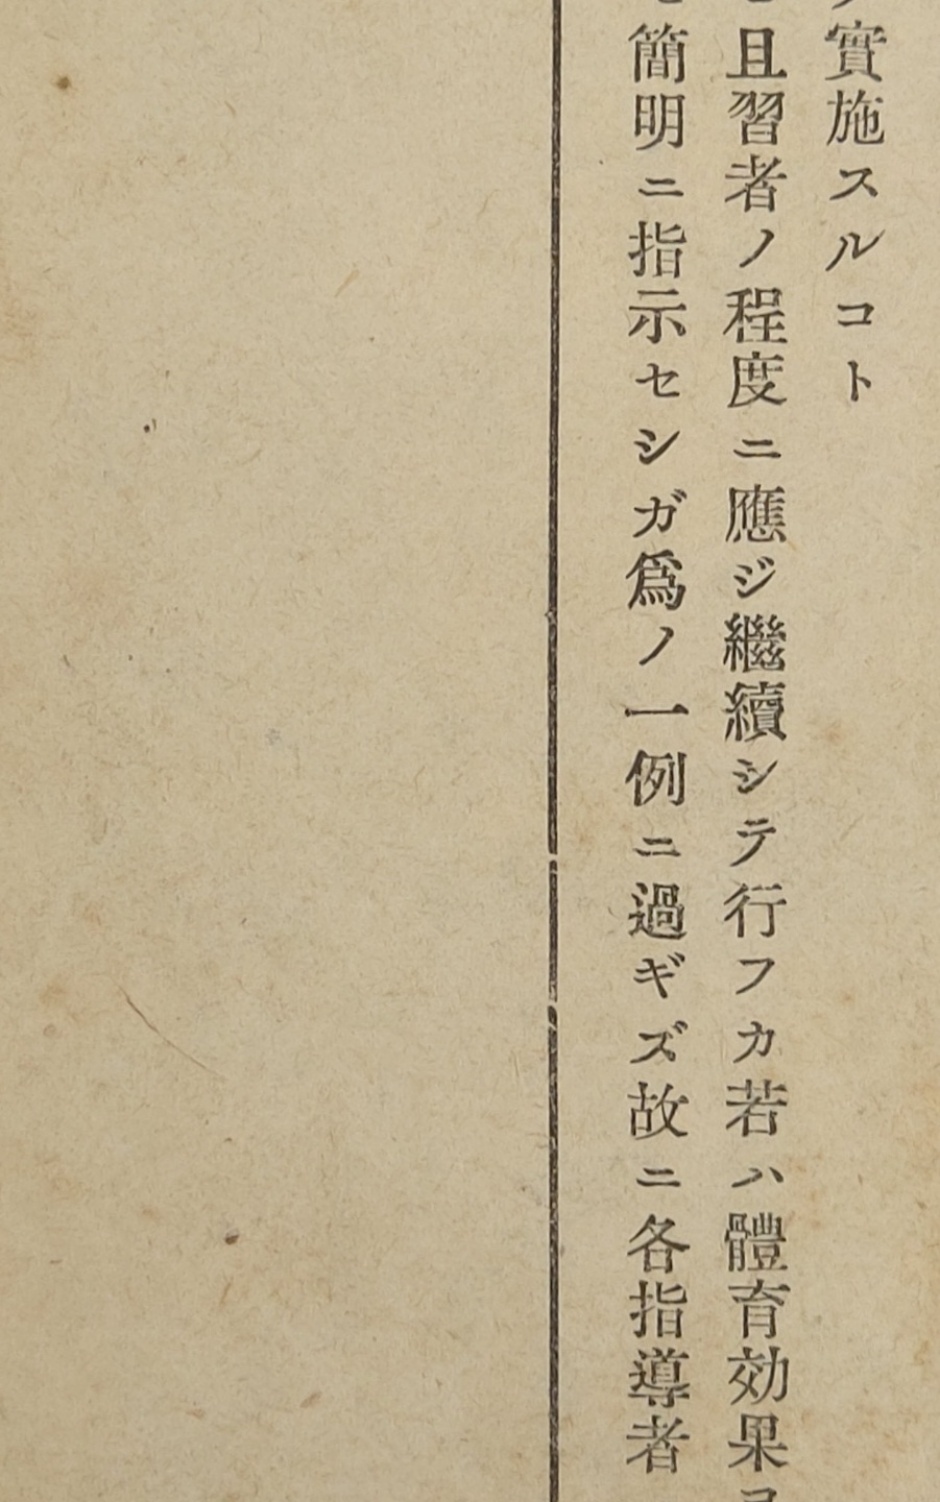 實施スルコト
且習者ノ程度ニ應ジ繼續シテ行フカ若ハ體育効果
簡明ニ指示セシガ爲ノ一例ニ過ギズ故ニ各指導者